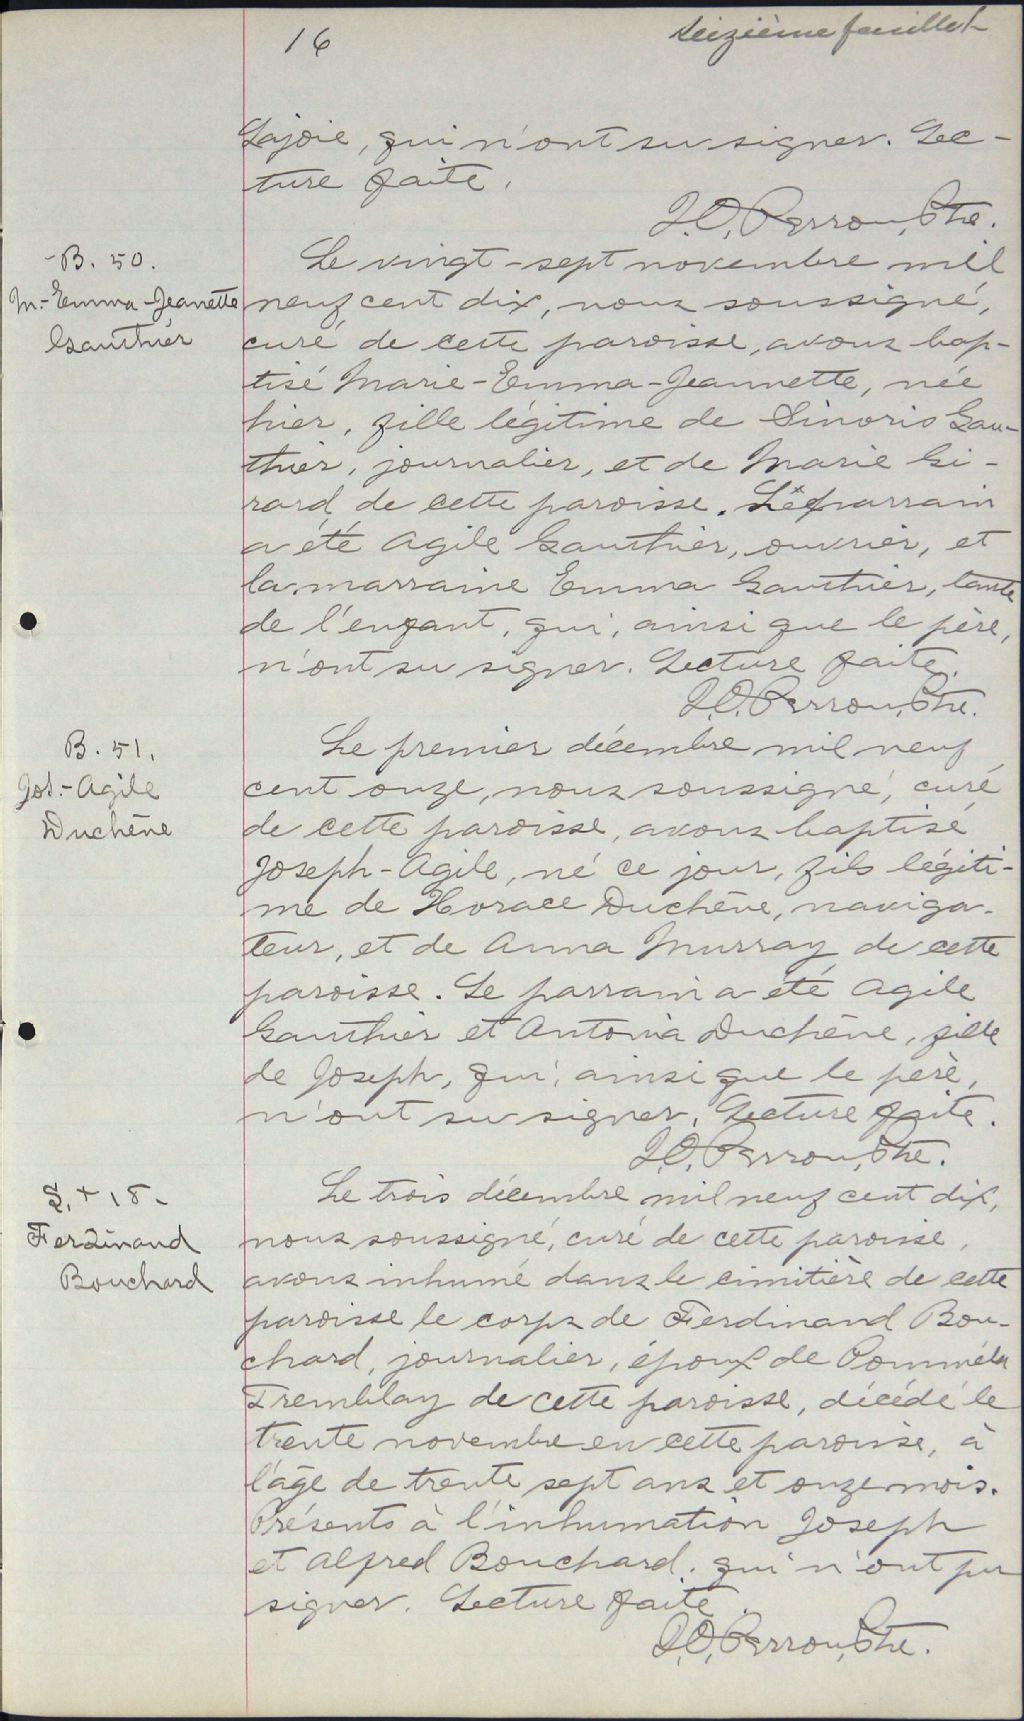 16
Seizième feuillet
Lajoie, qui n'ont su signer. Lec-
ture faite.
J.O. Perron, Ptre.
B. 50.
M.-Emma-Jeanette
Gauthier
Le vingt-sept novembre mil
neuf cent dix, nous soussigné,
curé de cette paroisse, avons bap-
tisé Marie-Emma-Jeannette, née
hier, fille légitime de Sinoris Gau-
thier, journalier, et de Marie Gi-
rard de cette paroisse. Le parrain
a été Agile Gauthier, ouvrier, et
la marraine Emma Gauthier, tante
de l'enfant, qui, ainsi que le père,
n'ont su signer. Lecture faite.
J.O. Perron, Ptre.
B. 51.
Jos.-Agile
Duchêne
Le premier décembre mil neuf
cent onze, nous soussigné, curé
de cette paroisse, avons baptisé
Joseph-Agile, né ce jour, fils légiti-
me de Horace Duchêne, naviga-
teur, et de Anna Murray de cette
paroisse. Le parrain a été Agile
Gauthier et Antonia Duchêne, fille
de Joseph, qui, ainsi que le père,
n'ont su signer. Lecture faite.
J.O. Perron, Ptre.
S. + 18.
Ferdinand
Bouchard
Le trois décembre mil neuf cent dix,
nous soussigné, curé de cette paroisse,
avons inhumé dans le cimitière de cette
paroisse le corps de Ferdinand Bou-
chard, journalier, époux de Pomméla
Tremblay de cette paroisse, décédé le
trente novembre en cette paroisse, à
l'âge de trente sept ans et onze mois.
Présents à l'inhumation Joseph
et Alfred Bouchard, qui n'ont pu
signer. Lecture faite.
J.O. Perron, Ptre.